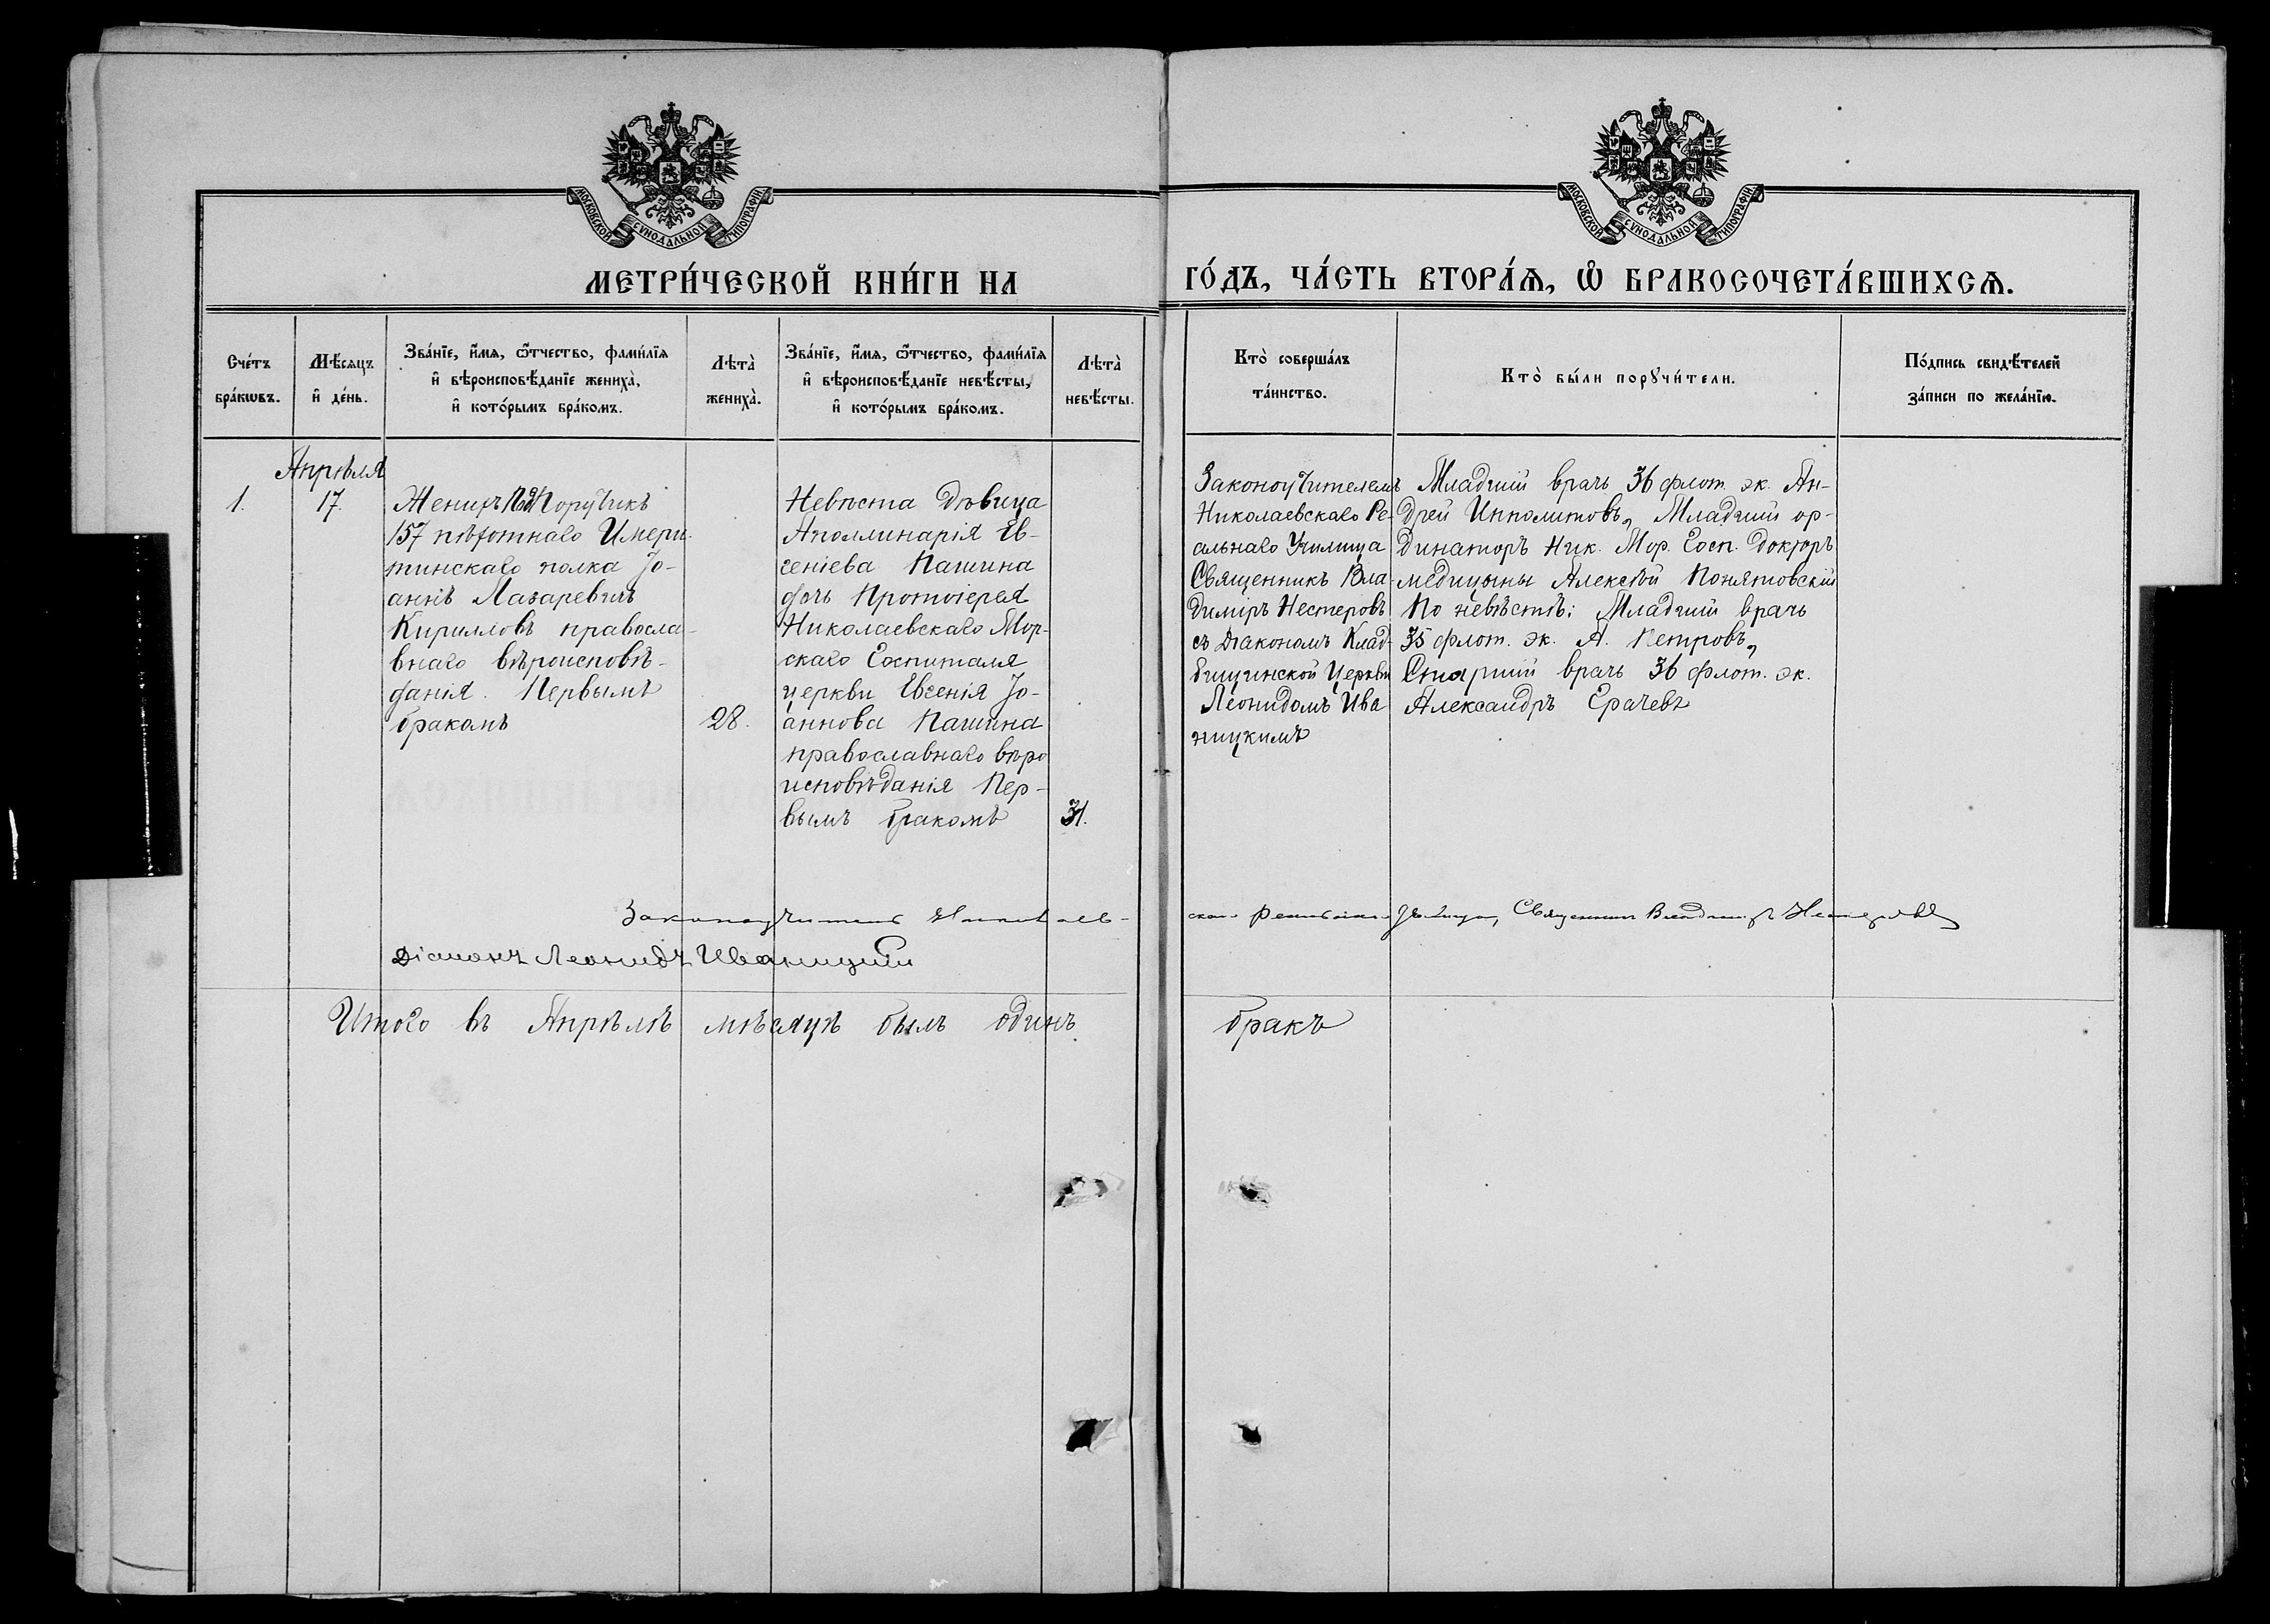 МОСКОВСКОЙ СУНОДАЛЬНОЙ ТИПОГРАФІИ
МОСКОВСКОЙ СУНОДАЛЬНОЙ ТИПОГРАФІИ
МЕТРИ́ЧЕСКОЙ КНИ́ГИ НА
ГО́ДЪ, ЧА́СТЬ ВТОРА́Ѧ, Ѡ҆ БРАКОСОЧЕТА́ВШИХСѦ.
Сче́тъ
бра́кѡвъ.
Мѣ́сѧцъ
и҆ де́нь.
Зва́нїе, и҆́мѧ, ѻ҆́тчество, фамѝлїѧ
и҆ вѣроисповѣ́данїе жениха̀,
и҆ кото́рымъ бра́комъ.
Лѣта̀
жениха̀.
Зва́нїе, и҆́мѧ, ѻ҆́тчество, фами́лїѧ
и҆ вѣроисповѣ́данїе невѣ́сты,
и҆ кото́рымъ бра́комъ.
Лѣта̀
невѣ́сты.
Кто̀ соверша́лъ
та́инство.
Кто̀ бы́ли порꙋчи́тели.
По́дпись свидѣ́телей
за́писи по жела́нїю.
Апрѣля
1.
17.
Женихъ Подпоручикъ
157 пѣхотнаго Имери-
тинскаго полка Іо-
аннъ Лазаревичъ
Кирилловъ правосла-
внаго вѣроисповѣ-
данія. Первымъ
бракомъ
28.
Невѣста Дѣвица
Аполлинарія Ев-
геніева Пашина
дочь Протоіерея
Николаевскаго Мор-
скаго Госпиталя
церкви Евгенія Іо-
аннова Пашина
православнаго вѣро
исповѣданія Пер-
вымъ бракомъ
31.
Законоучителемъ
Николаевскаго Ре-
альнаго Училища
Священникъ Вла-
диміръ Нестеровъ
съ Діакономъ Клад-
бищинской Церкви
Леонидомъ Ива
ницкимъ
Младшій врачъ 36 флот. эк. Ан-
дрей Ипполитовъ, Младшій ор-
динаторъ Ник. Мор. Госп. Докторъ
медицыны Алексѣй Понятовскій
По невѣстѣ: Младшій врачъ
35 флот. эк. А. Петровъ,
Старшій врачъ 36 флот. эк.
Александръ Грачевъ
Законоучитель Николаев-
скаго Реальнаго Училища, Священникъ Владиміръ Нестеровъ
Діаконъ Леонидъ Иваницкій
Итого въ Апрѣлѣ мѣсяцѣ былъ одинъ
бракъ